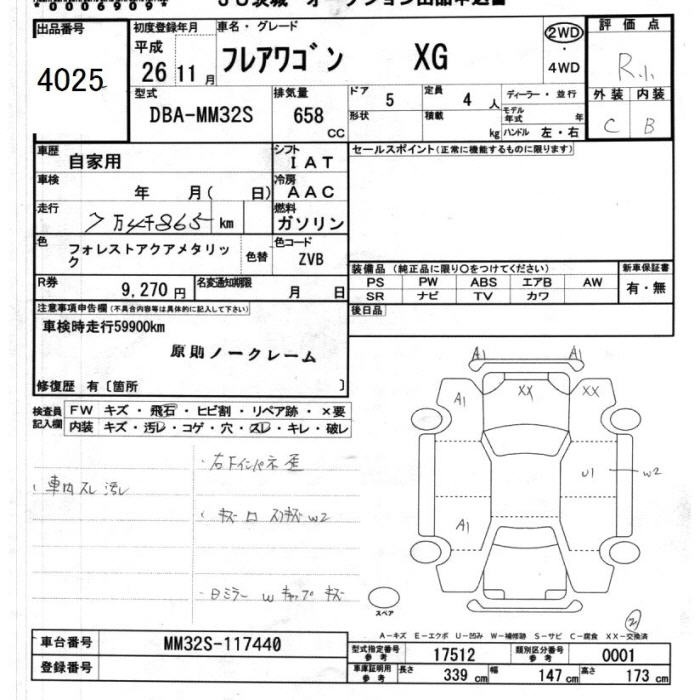 出品番号
4025
初度登録年月
平成
26 11月
車名・グレード
フレアワゴン XG
2WD
・
4WD
評価点
R小
外装 内装
C B
型式
DBA-MM32S
排気量
658
CC
ドア
5
定員
4 人
形状
積載
kg
ディーラー・並行
モデル年式 年
ハンドル 左・右
車歴
自家用
シフト
IAT
車検
年 月( 日)
冷房
AAC
走行
7万4千865 km
燃料
ガソリン
色
フォレストアクアメタリック
色替
色コード
ZVB
R券
9,270円
名変通知期限
月 日
セールスポイント(正常に機能するものに限ります)
装備品(純正品に限り○をつけてください)
PS PW ABS エアB AW
SR ナビ TV カワ
新車保証書
有・無
後日品
注意事項申告欄(不具合内容等は具体的に記入して下さい)
車検時走行59900km
原則ノークレーム
修復歴 有〔箇所 〕
検査員記入欄
FW キズ・飛石・ヒビ割・リペア跡・×要
内装 キズ・汚レ・コゲ・穴・スレ・キレ・破レ
・車内スレ汚レ
・右Fインパネ歪
・キズ ロ スリキズ W2
・日ミラー W キャップ キズ
A1 A1
A1 XX XX
U1 W2
A1
スペア
A-キズ E-エクボ U-凹み W-補修跡 S-サビ C-腐食 XX-交換済
車台番号
MM32S-117440
登録番号
型式指定番号 参考
17512
類別区分番号 参考
0001
車庫証明用 参考
長さ 339 cm
幅 147 cm
高さ 173 cm